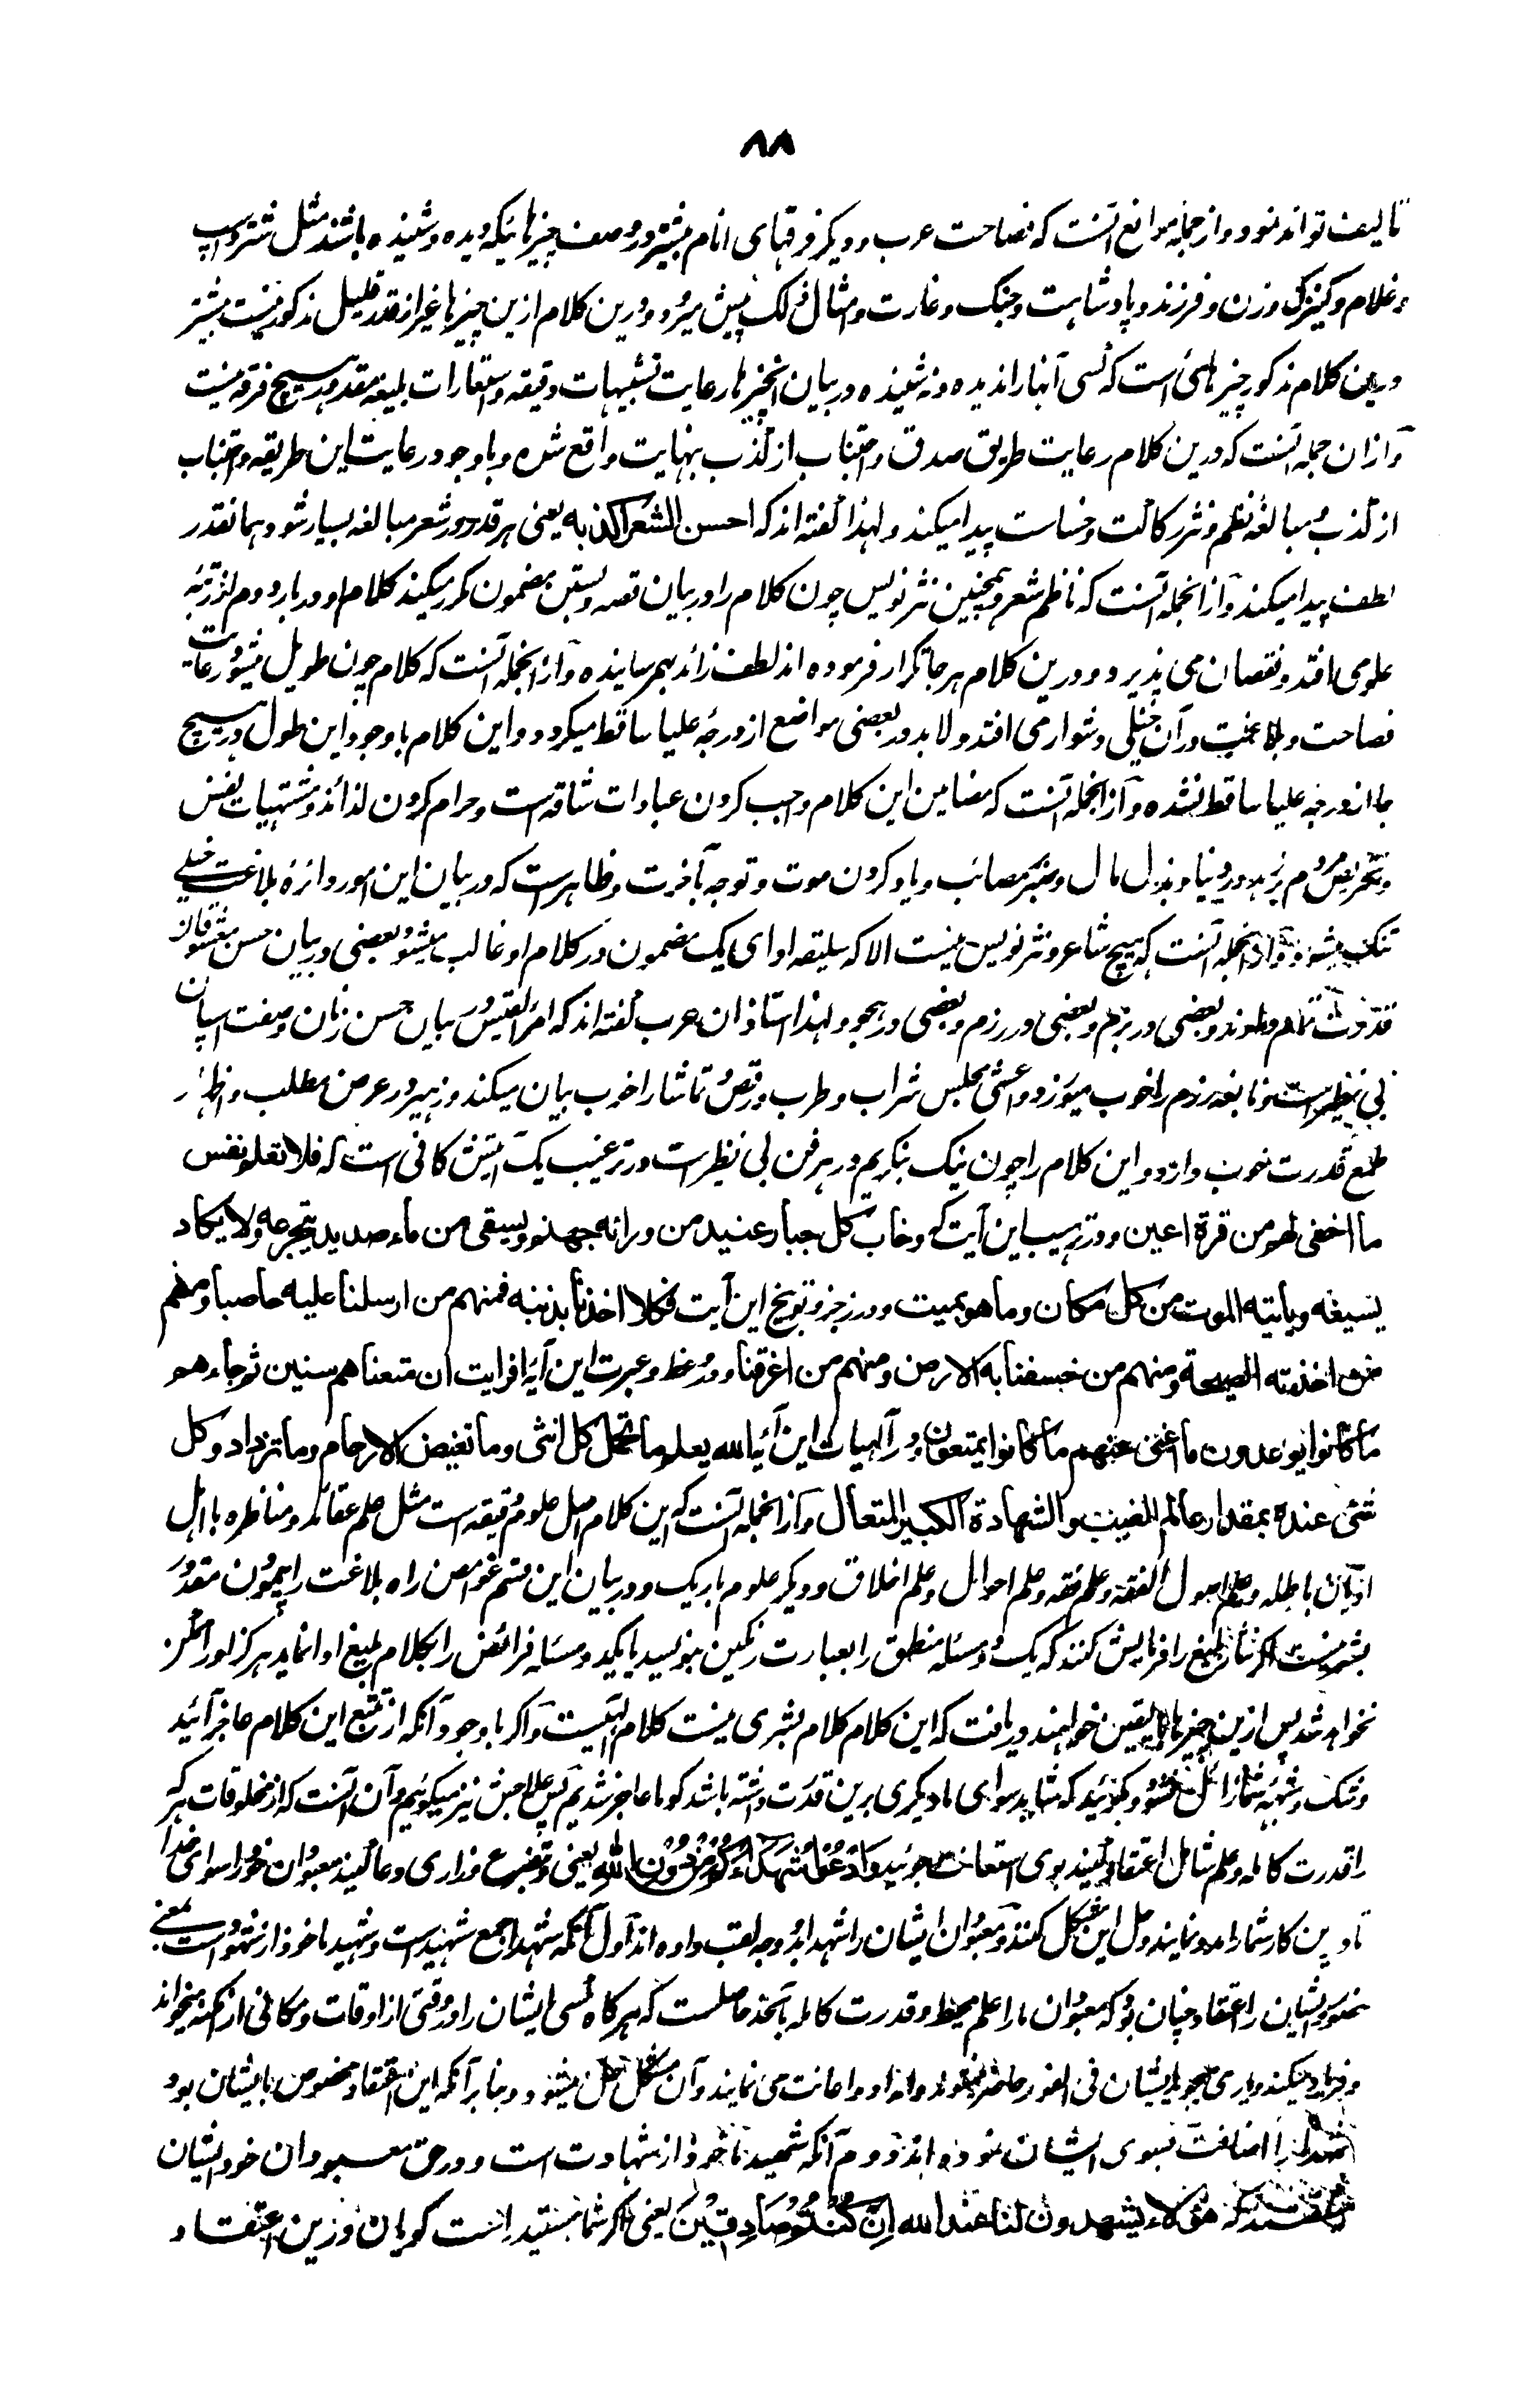 ٨٨
تالیف تواند نمود و از جمله موانع آنست که فصاحت عرب و دیگر فرقهای انام بیشتر در وصف چیزهائیکه دیده و شنیده باشند مثل شتر و اسپ
و غلام و کنیزک و زن و فرزند و پادشاهت و جنگ و غارت و امثال ذلک پیش میرود و درین کلام ازین چیزها غیر از قدر قلیل مذکور نیست بیشتر
درین کلام مذکور چیزهائی است که کسی آنها را ندیده و نه شنیده در بیان آنچیزها رعایت تشبیهات دقیقه و استعارات بلیغه مقدور هیچ فرقه نیست
و از ان جمله آنست که درین کلام رعایت طریق صدق و اجتناب از کذب بنهایت واقع شده و باوجود رعایت این طریقه و اجتناب
از کذب و مبالغه نظم و نثر رکاکت و خساست پیدا میکند و لهذا گفته اند که احسن الشعر اکذبه یعنی هر قدر در شعر مبالغه بسیار شود همانقدر
لطف پیدا میکند و از انجمله آنست که ناظم شعر و همچنین نثر نویس چون کلام را در بیان قصه و بستن مضمون مکرر میکند کلام او در بار دوم از رتبه
علو می افتد و نقصان می پذیرد و درین کلام هر جا تکرار فرموده اند لطف زائد بهم رسانیده و از انجمله آنست که کلام چون طویل میشود رعایت
فصاحت و بلاغت در آن خیلی دشوار می افتد و لابد در بعضی مواضع از درجه علیا ساقط میگردد و این کلام باوجود این طول در هیچ
جا از درجه علیا ساقط نشده و از انجمله آنست که مضامین این کلام واجب کردن عبادات شاقه است و حرام کردن لذائذ و مشتهیات نفس
و تحریض مردم بزهد در دنیا و بذل مال و صبر بر مصائب و یاد کردن موت و توجه بآخرت و ظاهر است که در بیان این امور دائره بلاغت خیلی
تنگ میشود و از انجمله آنست که هیچ شاعر و نثر نویس نیست الا که سلیقه ادای یک مضمون در کلام او غالب میشود بعضی در بیان حسن معشوقان
قدرت تمام دارند و بعضی در بزم و بعضی در رزم و بعضی در هجو و لهذا استاذان عرب گفته اند که امرأ القیس در بیان حسن زنان و صفت اسپان
بی نظیر است و نابغه رزم را خوب میورزد و اعشی مجلس شراب و طرب و رقص و تماشا را خوب بیان میکند و زهیر در عرض مطلب و اظهار
طمع قدرت خوب دارد و این کلام را چون نیک بنگریم در هر فن بی نظیر است در ترغیب یک آیتش کافی است که فلا تعلم نفس
ما اخفی لهم من قرة اعین و در ترهیب این آیت که و خاب کل جبار عنید من ورائه جهنم ویسقی من ماء صدید یتجرعه ولا یکاد
یسیغه ویأتیه الموت من کل مکان وما هو بمیت و در زجر و توبیخ این آیت فکلا اخذنا بذنبه فمنهم من ارسلنا علیه حاصبا ومنهم
من اخذته الصیحة ومنهم من خسفنا به الارض ومنهم من اغرقنا و در وعظ و عبرت این آیه افرایت ان متعناهم سنین ثم جاءهم
ما کانوا یوعدون ما اغنی عنهم ما کانوا یمتعون و در آلهیات این آیه الله یعلم ما تحمل کل انثی وما تغیض الارحام وما تزداد وکل
شئ عنده بمقدار عالم الغیب والشهادة الکبیر المتعال و از انجمله آنست که این کلام اصل علوم دقیقه است مثل علم عقائد و مناظره با اهل
ادیان باطله و علم اصول الفقه و علم فقه و علم احوال و علم اخلاق و دیگر علوم باریک و در بیان این قسم غوامض راه بلاغت را پیمودن مقدور
بشر نیست اگر شاعر بلیغ را فرمایش کنند که یک دو مسئله منطق را بعبارت رنگین بنویسد یا یکدو مسئله فرائض را بکلام بلیغ ادا نماید هرگز او را ممکن
نخواهد شد پس ازین چیزها بالیقین خواهند دریافت که این کلام کلام بشری نیست کلام الهیست و اگر باوجود آنکه از تتبع این کلام عاجز آئید
و شک و شبهه شما زائل نشود و بگوئید که شاید سوای ما دیگری برین قدرت داشته باشد گو ما عاجز شدیم پس علاجش نیز میگوئیم و آن آنست که از مخلوقات هر که
را قدرت کامله و علم شامل اعتقاد کنید بوی استعانت جوئید وَادْعُوا شُهَدَاءَكُمْ مِنْ دُوْنِ اللهِ یعنی و بتضرع و زاری دعا کنید معبودان خود را سوای خدا
تا درین کار شما را مدد نمایند و حل این مشکل کنند و معبودان ایشان را شهدا بدو وجه لقب داده اند اول آنکه شهدا جمع شهید است و شهید ماخوذ از شهود است بمعنی
حضور و ایشان را اعتقاد چنان بود که معبودان ما را علم محیط و قدرت کامله بآنحد حاصلست که هر گاه کسی ایشان را در وقتی از اوقات و مکانی از امکنه میخواند
و فریاد میکند و یاری میجوید ایشان فی الفور حاضر میشوند و امداد و اعانت می نمایند و آن مشکل حل میشود و بنا بر آنکه این اعتقاد مخصوص بایشان بود
شهدا را اضافت بسوی ایشان نموده اند و دوم آنکه شهید ماخوذ از شهادت است و در حق معبودان خود ایشان
میگفتند که هؤلاء یشهدون لنا عند الله اِنْ كُنْتُمْ صَادِقِيْنَ یعنی اگر شما هستید راست گویان درین اعتقاد